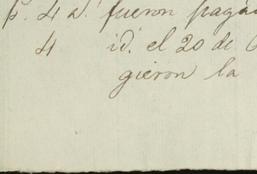 p. 4 d. fueron pagad
4 id. el 20 de
gieron la